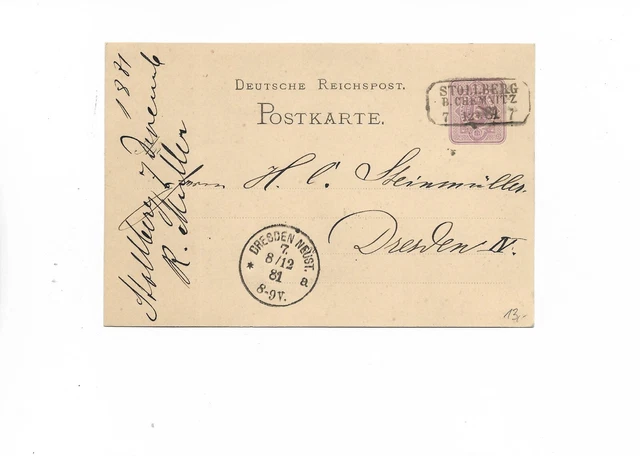 DEUTSCHE REICHSPOST.
POSTKARTE.
STOLLBERG
B. CHEMNITZ
7 12 81 7
Herrn H. C. Steinmüller
Dresden IV.
DRESDEN NEUST.
7.
8/12
81
* a
8-9V.
Stollberg 7 Decemb 1881
R. Müller
13,-